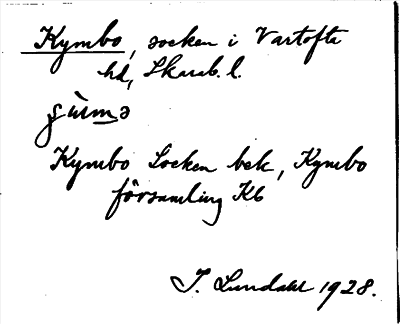 Kymbo, socken i Vartofta
hd, Skarab. l.
Kymbo Socken bek, Kymbo
församling Kb
I. Lundahl 1928.